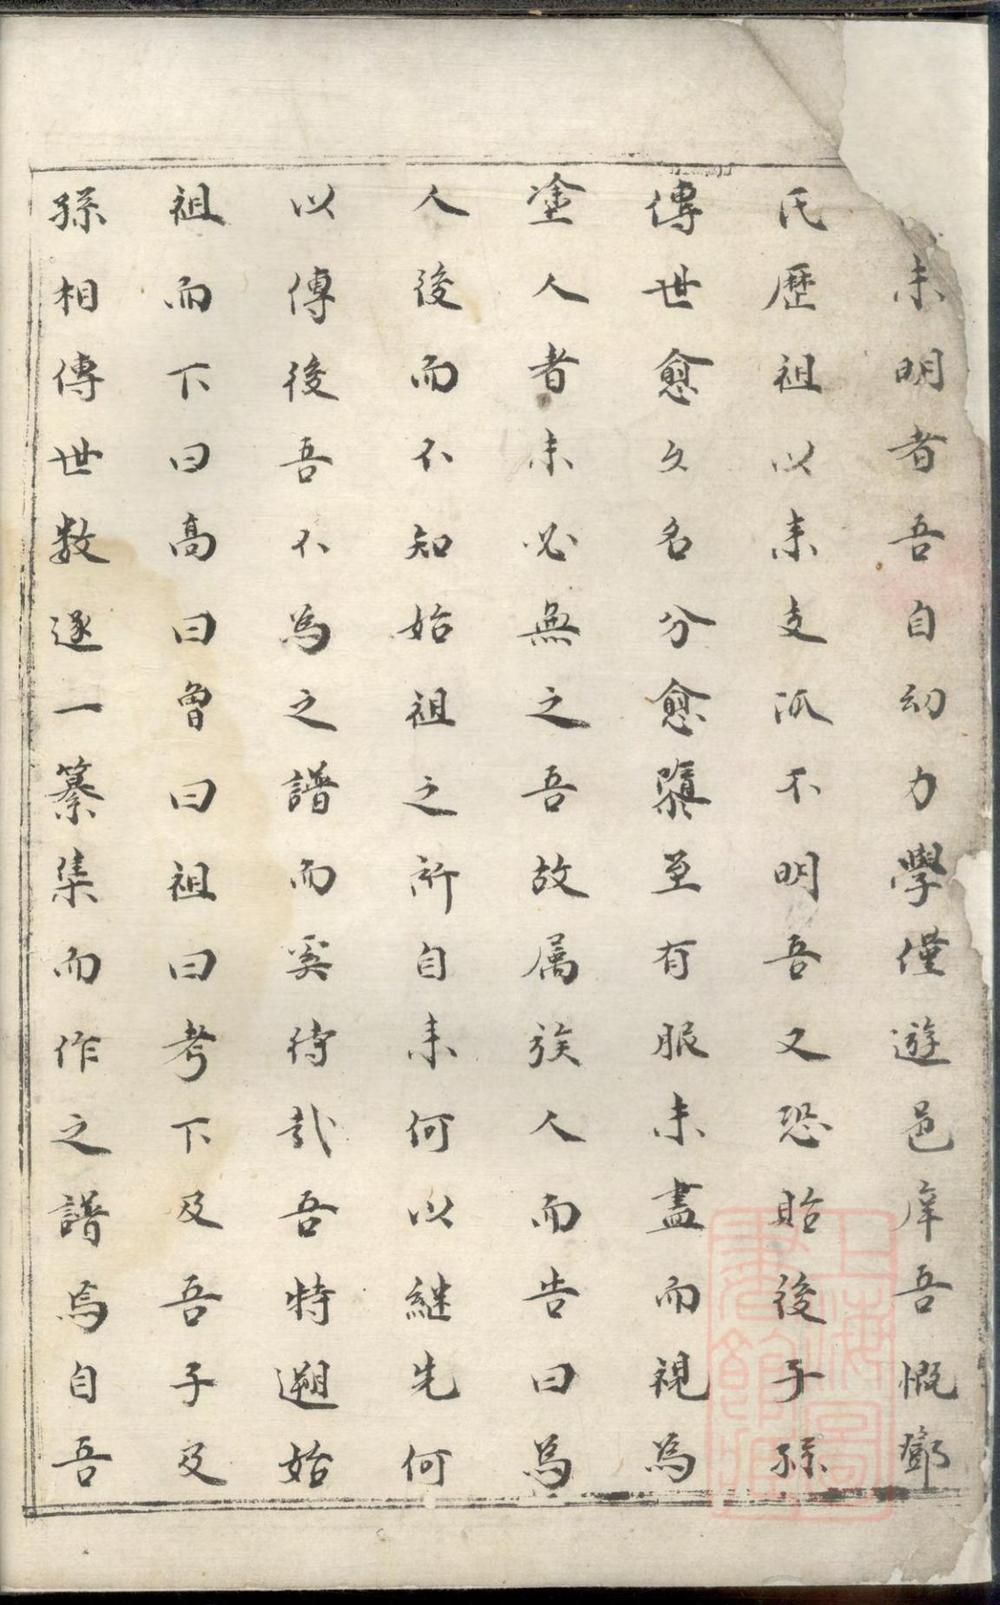 未明者吾自幼力學僅遊邑庠吾慨鄧
氏歷祖以来支派不明吾又恐貽後子孫
傳世愈久名分愈隳至有服未盡而視為
塗人者未必無之吾故属族人而告曰為
人後而不知始祖之所自来何以継先何
以傳後吾不為之譜而奚待哉吾特遡始
祖而下曰高曰曾曰祖曰考下及吾子及
孫相傳世数逐一纂集而作之譜焉自吾
上海圖書館藏